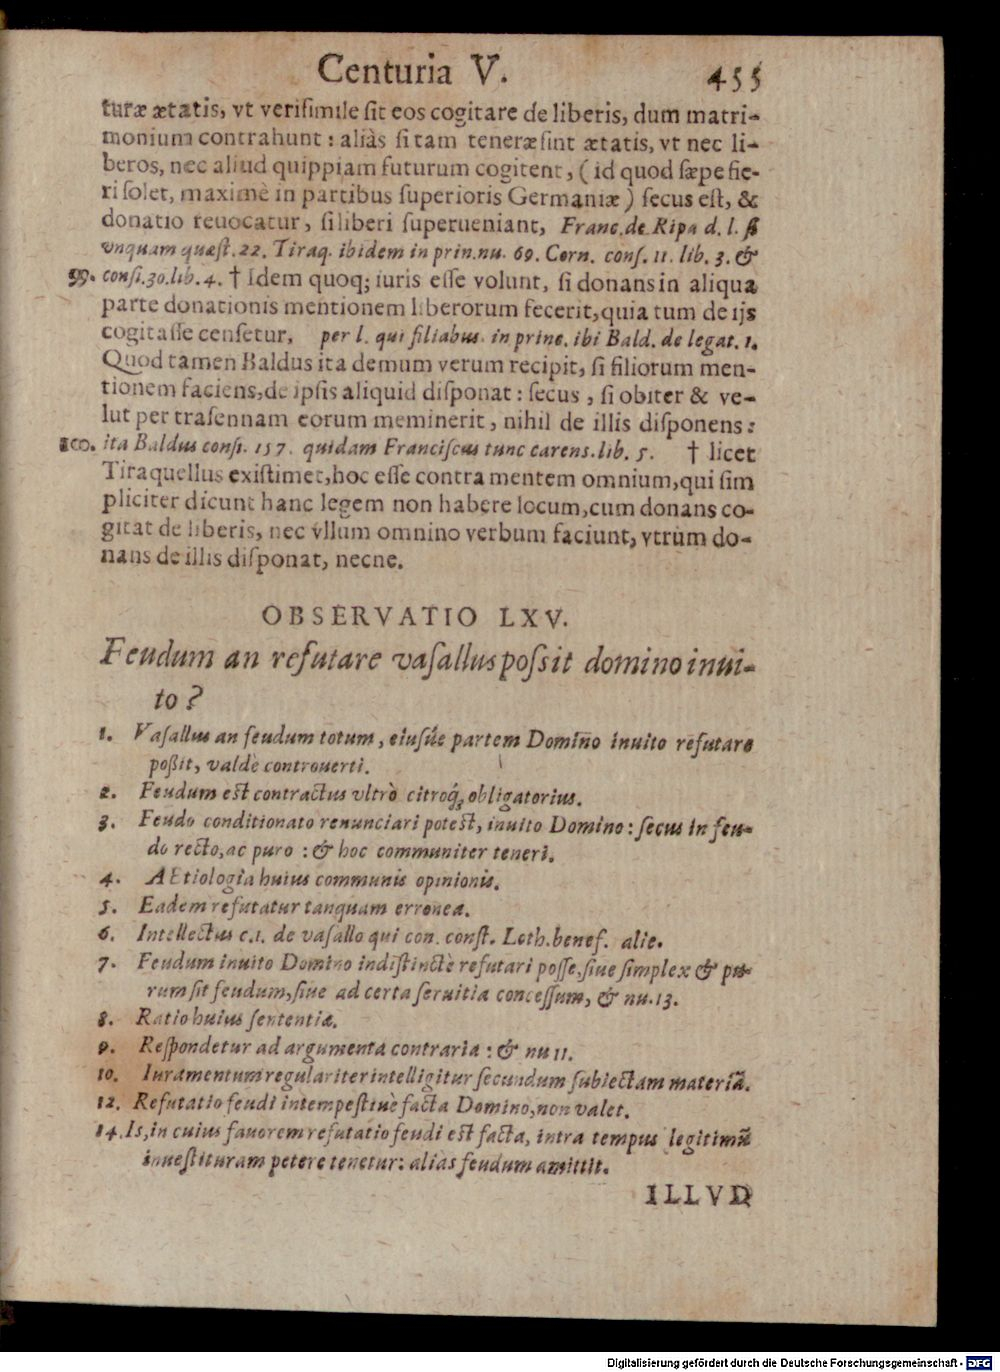 Centuria V. 455
turæ ætatis, vt verisimile sit eos cogitare de liberis, dum matri-
monium contrahunt: aliàs si tam teneræ sint ætatis, vt nec li-
beros, nec aliud quippiam futurum cogitent, (id quod sæpe fie-
ri solet, maximè in partibus superioris Germaniæ) secus est, &
donatio reuocatur, si liberi superueniant, Franc. de Ripa d. l. si
vnquam quæst. 22. Tiraq. ibidem in prin. nu. 69. Corn. cons. 11. lib. 3. &
99. consi. 30. lib. 4. † Idem quoq; iuris esse volunt, si donans in aliqua
parte donationis mentionem liberorum fecerit, quia tum de ijs
cogitasse censetur, per l. qui filiabus. in princ. ibi Bald. de legat. 1.
Quod tamen Baldus ita demum verum recipit, si filiorum men-
tionem faciens, de ipsis aliquid disponat: secus, si obiter & ve-
lut per trasennam eorum meminerit, nihil de illis disponens:
100. ita Baldus consi. 157. quidam Franciscus tunc carens. lib. 5. † licet
Tiraquellus existimet, hoc esse contra mentem omnium, qui sim
pliciter dicunt hanc legem non habere locum, cum donans co-
gitat de liberis, nec vllum omnino verbum faciunt, vtrùm do-
nans de illis disponat, necne.
OBSERVATIO LXV.
Feudum an refutare vasallus possit domino inui-
to?
1. Vasallus an feudum totum, eiusúe partem Domino inuito refutare
poßit, valdè controuerti.
2. Feudum est contractus vltrò citroq; obligatorius.
3. Feudo conditionato renunciari potest, inuito Domino: secus in feu-
do recto, ac puro: & hoc communiter teneri.
4. AEtiologia huius communis opinionis.
5. Eadem refutatur tanquam erronea.
6. Intellectus c. 1. de vasallo qui con. const. Loth. benef. alie.
7. Feudum inuito Domino indistinctè refutari posse, siue simplex & pu-
rum sit feudum, siue ad certa seruitia concessum, & nu. 13.
8. Ratio huius sententiæ.
9. Respondetur ad argumenta contraria: & nu 11.
10. Iuramentum regulariter intelligitur secundum subiectam materiã.
12. Refutatio feudi intempestiuè facta Domino, non valet.
14. Is, in cuius fauorem refutatio feudi est facta, intra tempus legitimũ
inuestituram petere tenetur: alias feudum amittit.
ILLVD
Digitalisierung gefördert durch die Deutsche Forschungsgemeinschaft - DFG